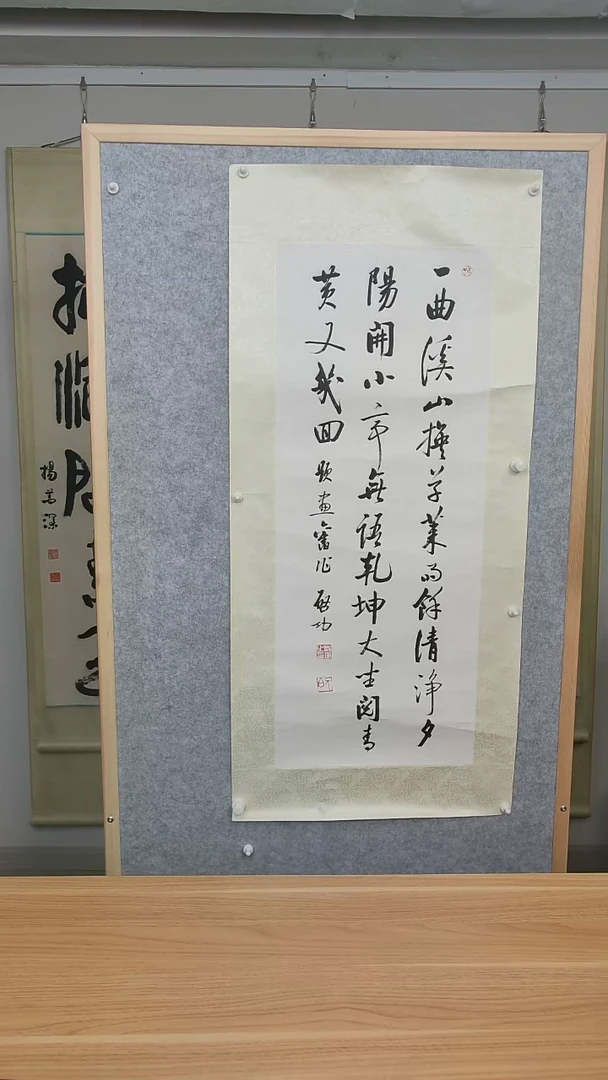 一曲溪山草萊雨餘清淨夕
陽開小亭無語乾坤大坐閱青
黃又幾回 題畫舊作 啟功
楊善深